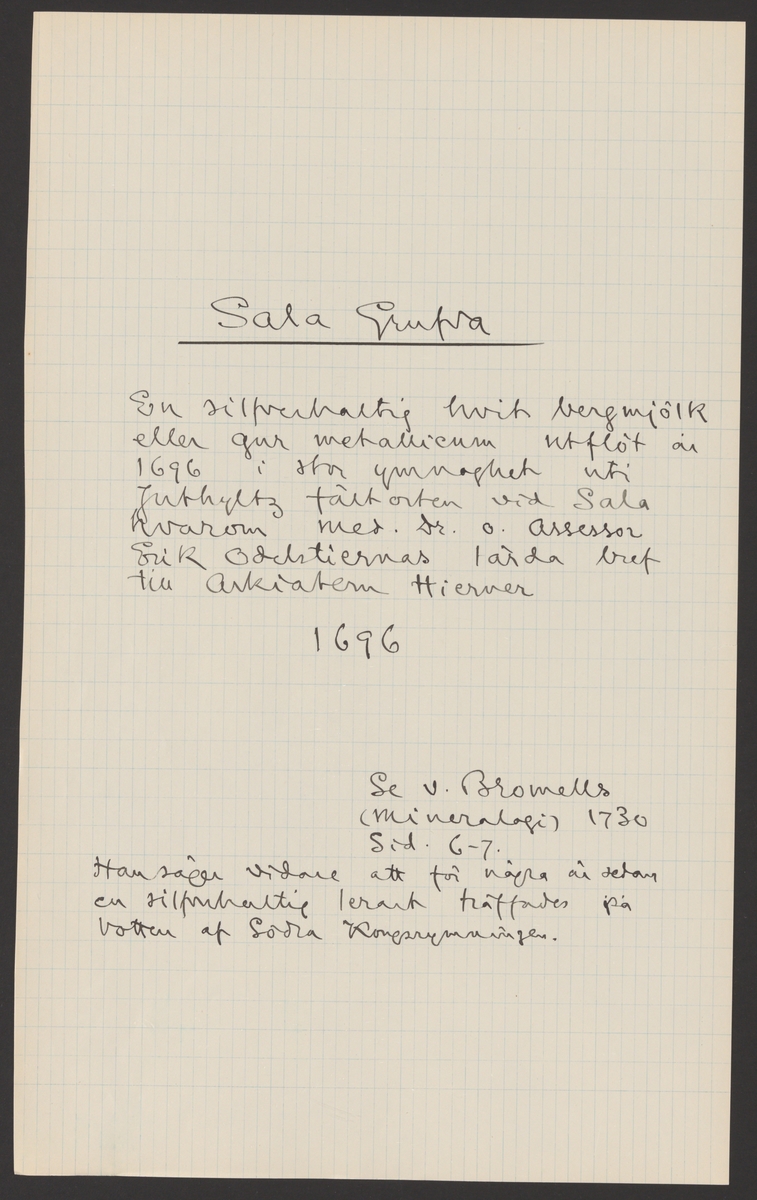 Sala Grufva
En silfverhaltig hvit bergmjölk
eller gur metallicum utflöt år
1696 i stor ymnoghet uti
Juthyltz fältorten vid Sala
hvarom med. Dr. o. Assessor
Erik Odelstiernas lärda bref
till Arkiatern Hierner
1696
Se v. Bromells
(Mineralogi) 1730
Sid. 6-7.
Han säger vidare att för några år sedan
en silfverhaltig lerart träffades på
botten af Södra Kongsrymningen.